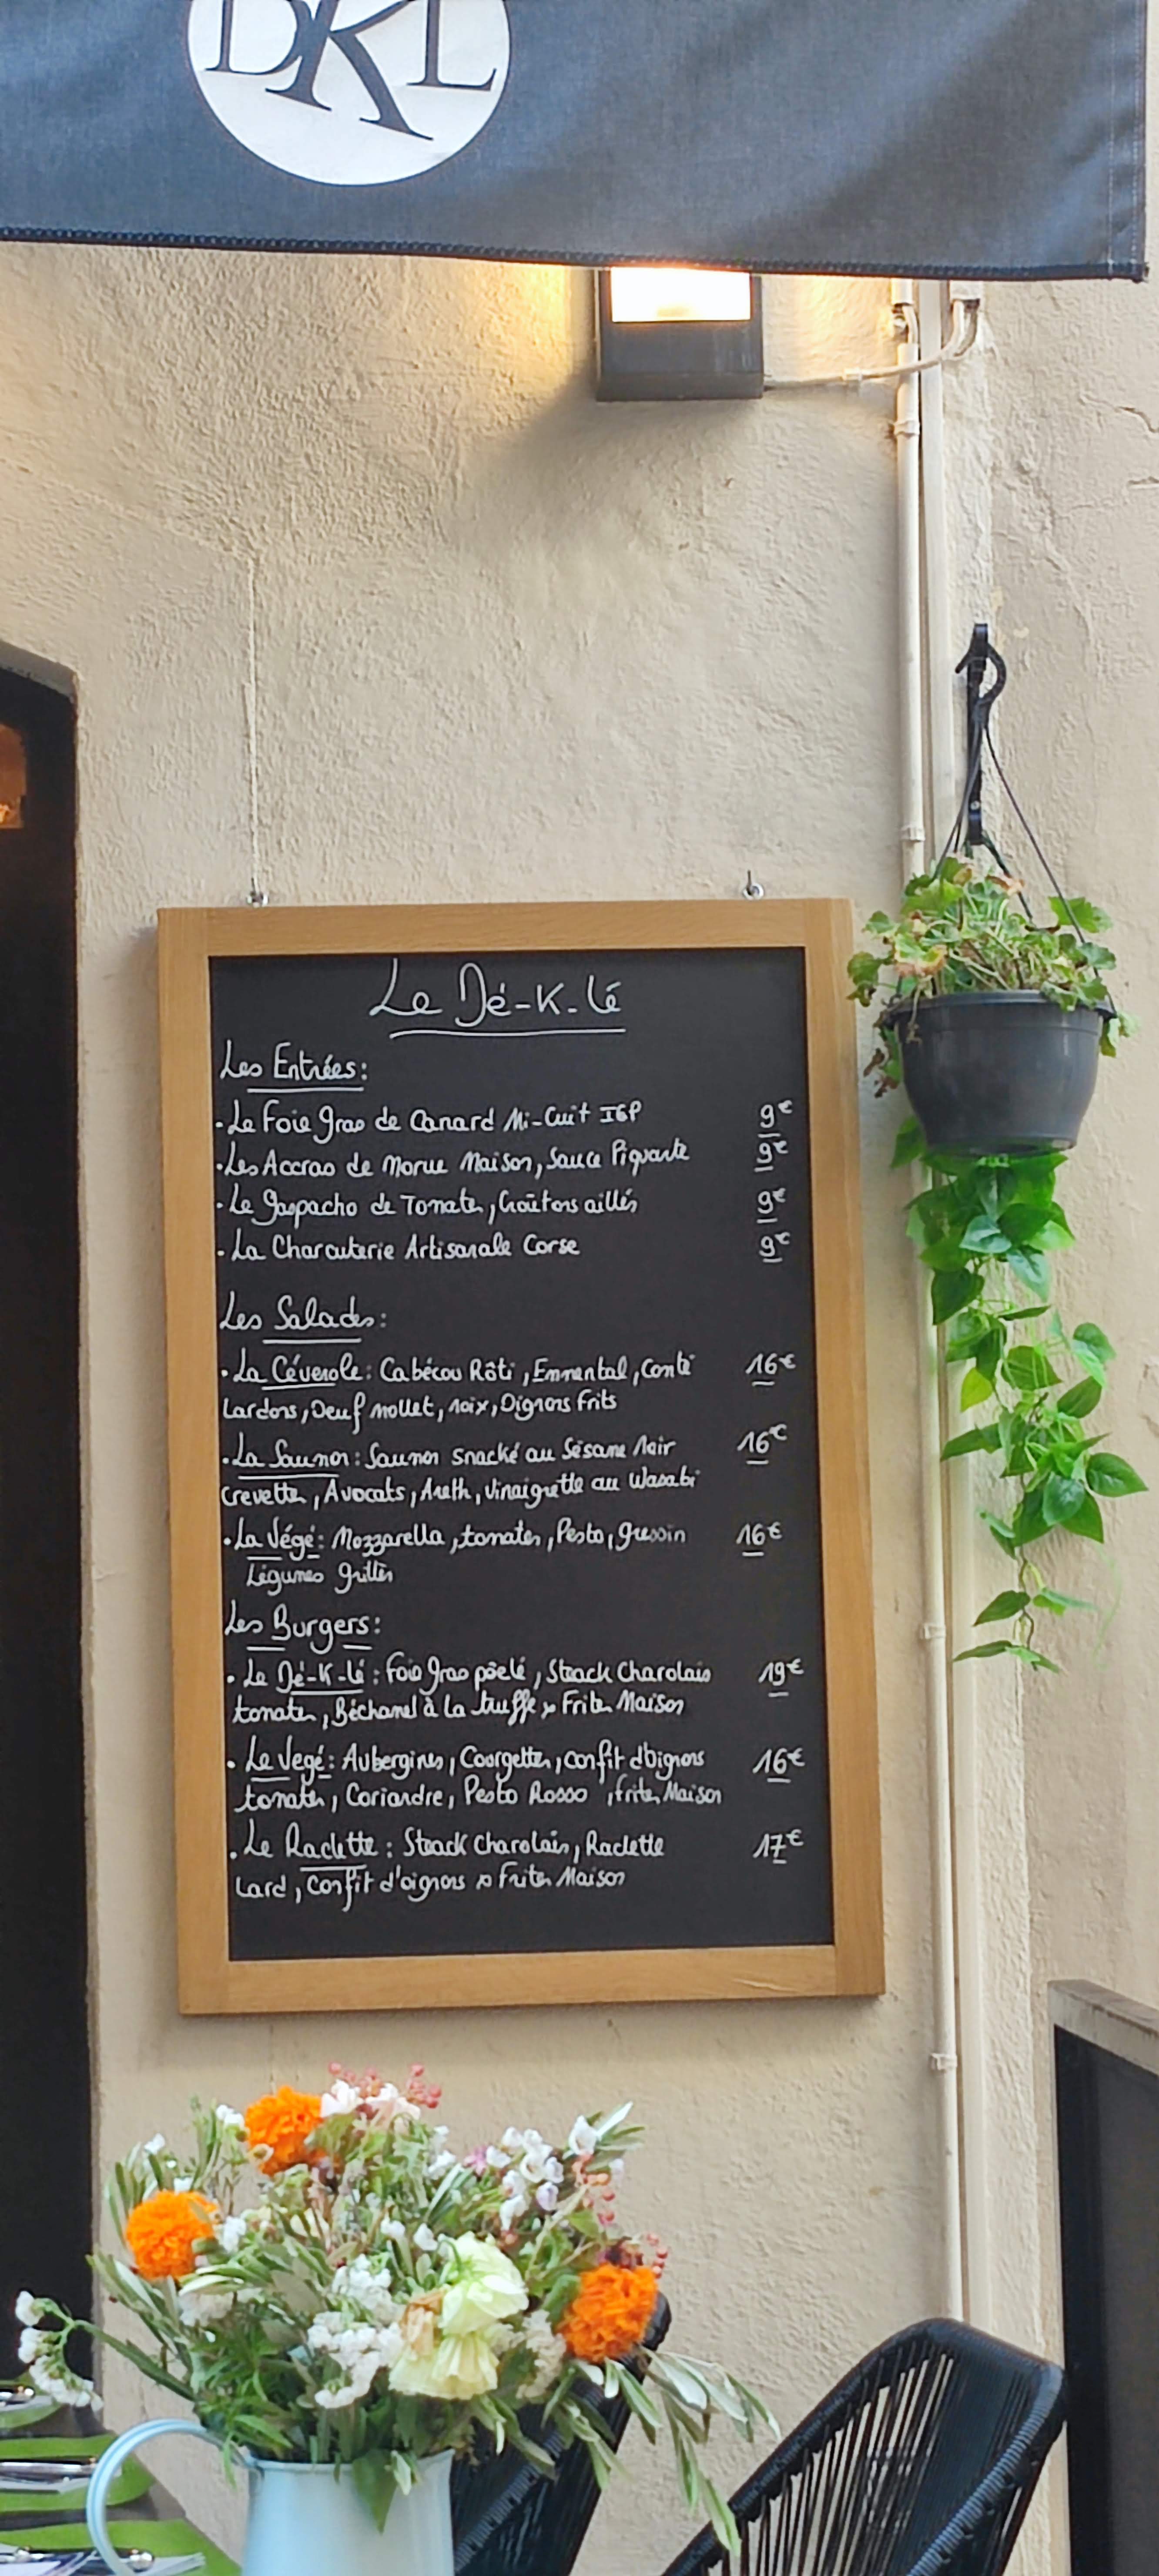 DKL
Le Dé-K-lé
Les Entrées:
• Le Foie gras de Canard Mi-Cuit IGP 9€
• Les Accras de Morue Maison, Sauce Piquante 9€
• Le gaspacho de Tomates, Croûtons aillés 9€
• La Charcuterie Artisanale Corse 9€
Les Salades:
• La Cévenole: Cabécou Rôti, Emmental, Comté 16€
Lardons, Oeuf mollet, noix, Oignons Frits
• La Saumon: Saumon snacké au Sésame Noir 16€
Crevettes, Avocats, Aneth, Vinaigrette au Wasabi
• La Végé: Mozzarella, tomates, Pesto, gressin 16€
Légumes grillés
Les Burgers:
• Le Dé-K-lé: Foie gras poêlé, Steack Charolais 19€
tomates, Béchamel à la truffe & Frites Maison
• Le Vegé: Aubergines, Courgettes, confit d'oignons 16€
tomates, Coriandre, Pesto Rosso, frites Maison
• Le Raclette: Steack Charolais, Raclette 17€
Lard, Confit d'oignons & Frites Maison